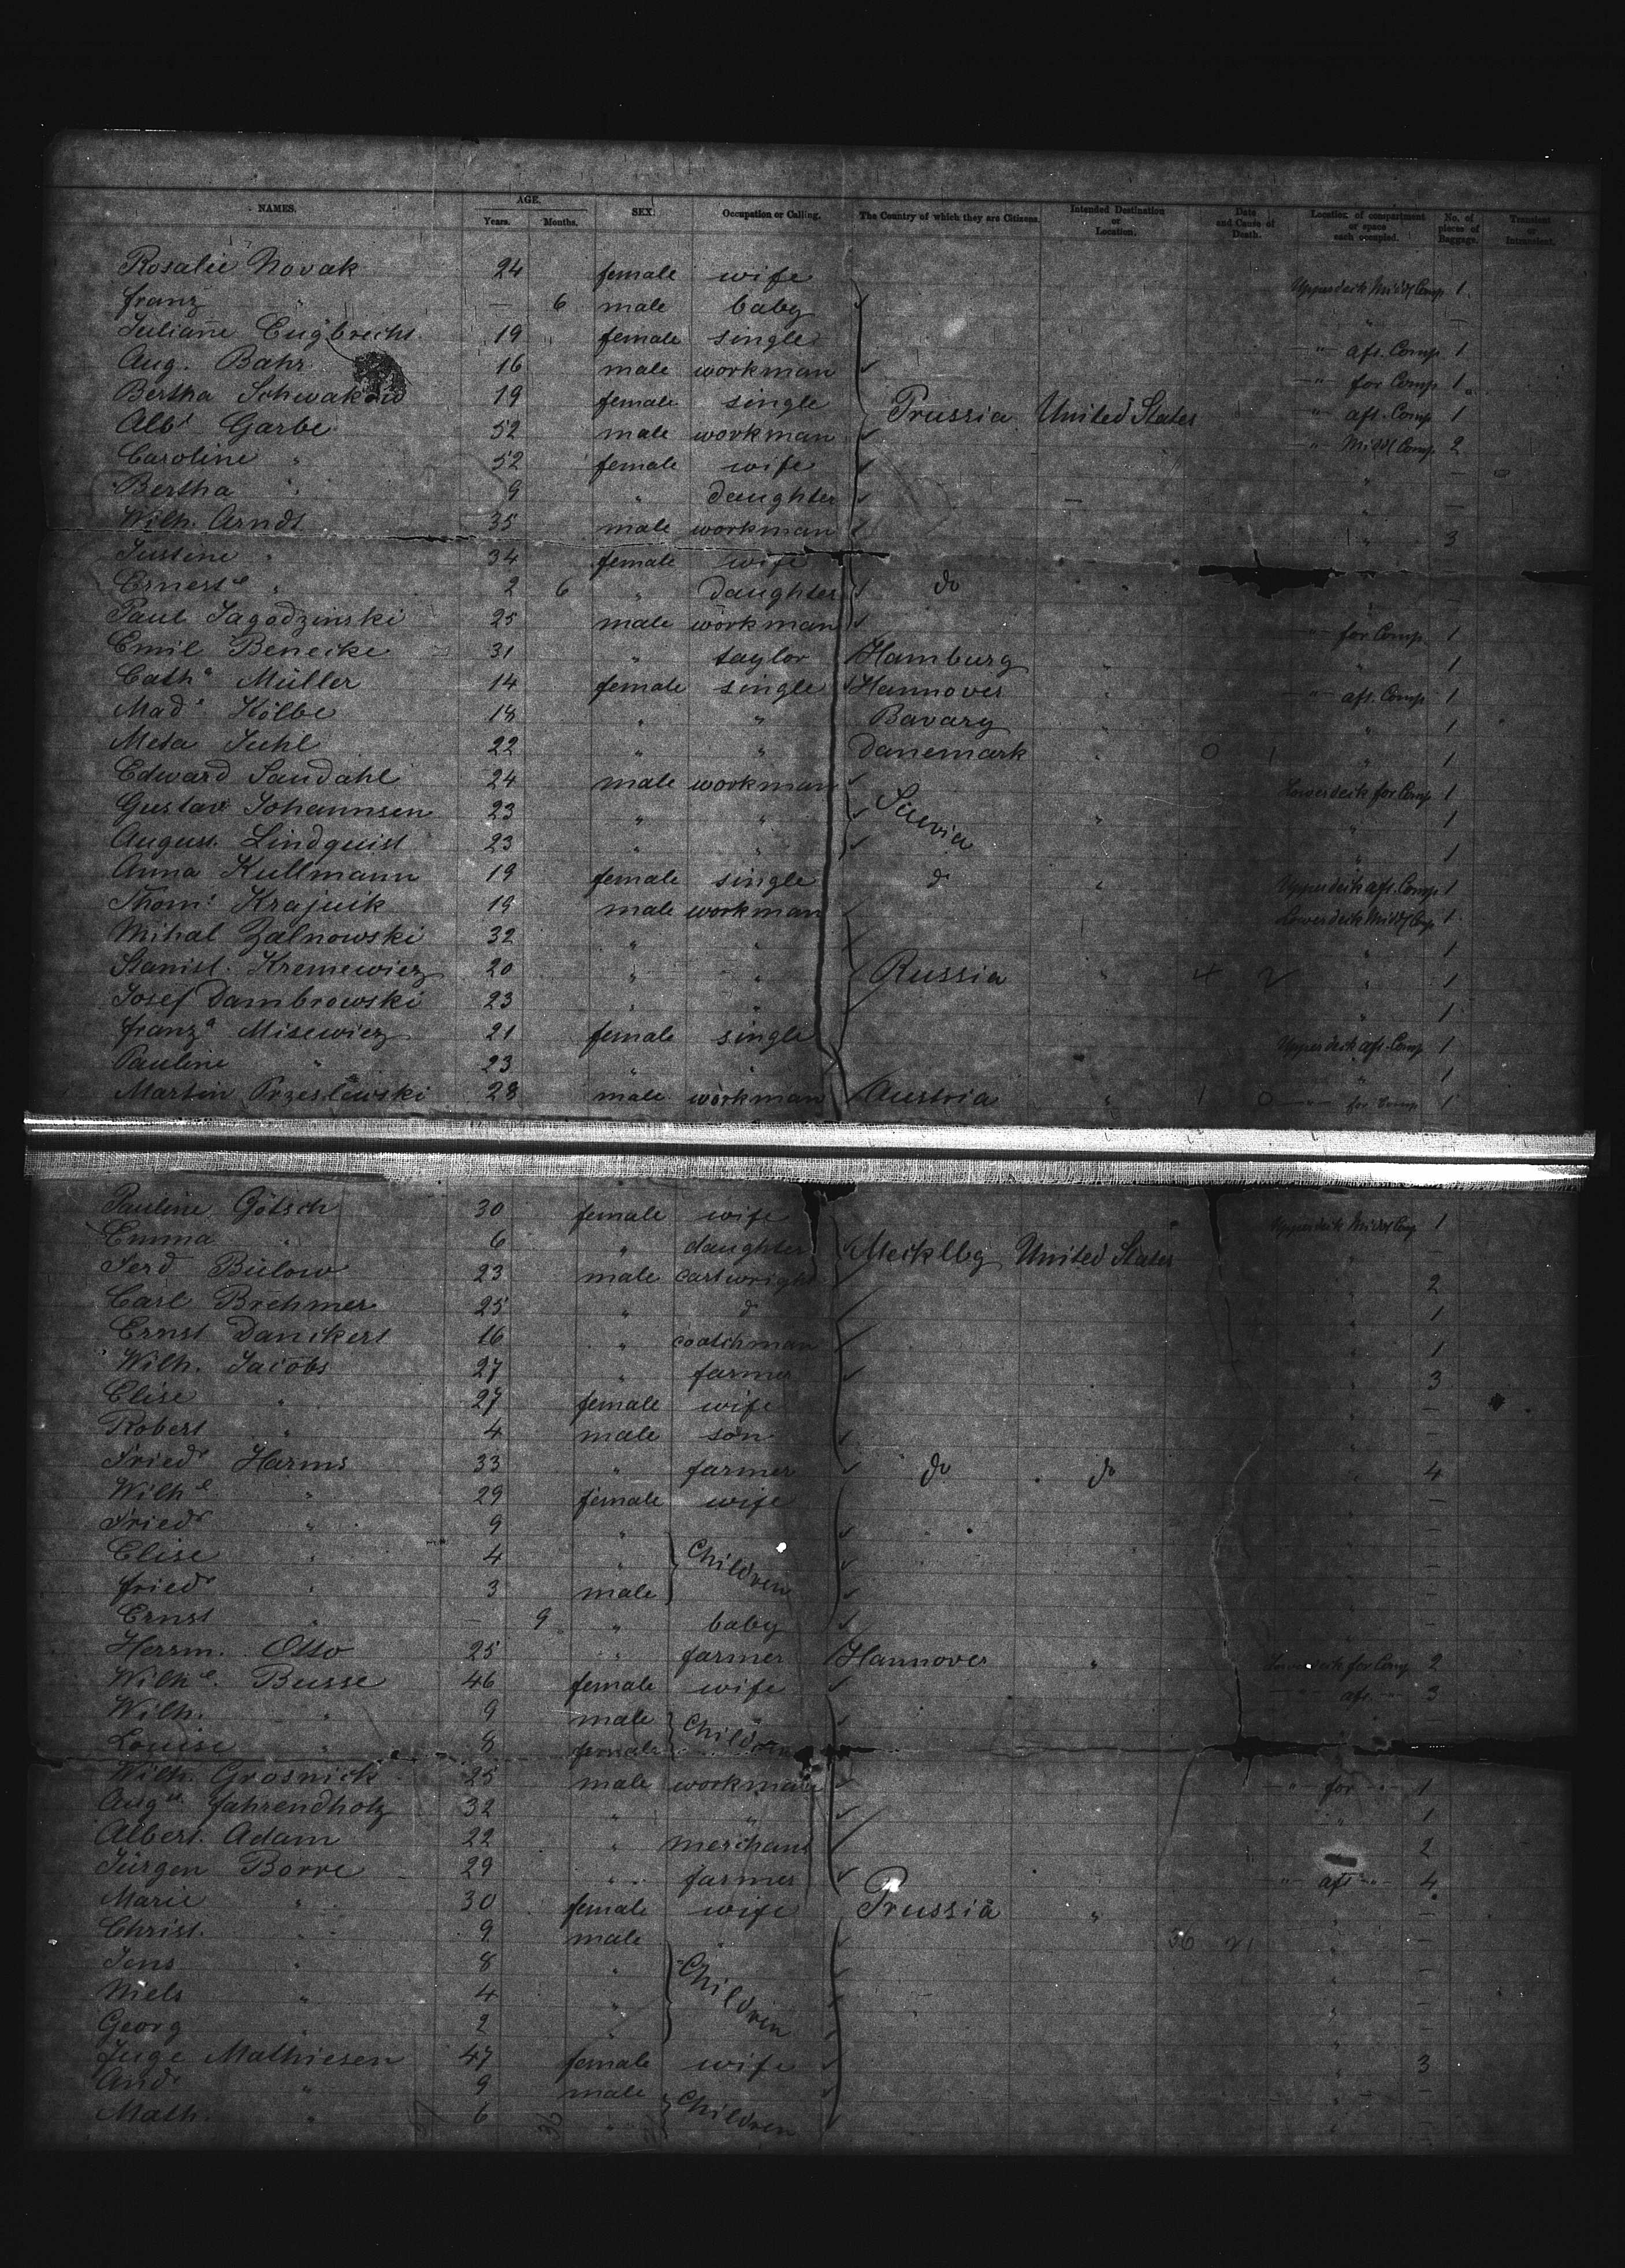 NAMES. AGE. Years. Months. SEX. Occupation or Calling. The Country of which they are Citizens. Intended Destination or Location. Date and Cause of Death. Location of compartment or space each occupied. No. of pieces of Baggage. Transient or Intransient.
Rosalie Novak 24 female wife Upperdeck Middl Comp. 1
Franz " — 6 male baby " —
Juliane Engbrecht 19 female single " aft. Comp. 1
Aug. Bahr 16 male workman " for Comp. 1
Bertha 19 female single Prussia United States " aft. Comp 1
Albt Garbe 52 male workman " Middl Comp. 2
Caroline " 52 female wife " —
Bertha " 9 " daughter " —
Wilh. Arndt 35 male workman " 3
Justine " 34 female wife
Ernestе " 2 6 " daughter do " —
Paul Jagodzinski 25 male workman " for Comp. 1
Emil Benecke 31 " taylor Hamburg " " 1
Catha Müller 14 female single Hannover " " aft. Comp 1
Mada Kölbe 18 " " Bavary " " 1
Meta Juhl 22 " " Danemark " 0 1 " 1
Edward Sandahl 24 male workman Lowerdeck for Comp 1
Gustav Johannsen 23 " " " " 1
August Lindquist 23 " " " 1
Anna Kullmann 19 female single do " Upperdeck aft. Comp 1
Thoms Krajnik 19 male workman Lowerdeck Middl Comp 1
Mihal Zalnowski 32 " " " 1
Stanisl. Kremewicz 20 " " Russia " 4 2 " 1
Josef Dambrowski 23 " " " 1
Franza Misewicz 21 female single Upperdeck aft. Comp 1
Pauline " 23 " " " 1
Martin Przeslewski 28 male workman Austria " 1 0 " for Comp 1
Pauline Götsch 30 female wife Upperdeck Middl Comp 1
Emma " 6 " daughter Mecklbg United States " —
Ferd Bülow 23 male cartwright " 2
Carl Brehmer 25 " do " 1
Ernst Danckert 16 " coatchman " 1
Wilh. Jacobs 27 " farmer " 3
Elise " 27 female wife " —
Robert " 4 male son " —
Friedr Harms 33 " farmer do do " 4
Wilhe " 29 female wife " —
Friedr " 9 " " —
Elise " 4 " Children " —
Friedr " 3 male " —
Ernst " — 9 " baby " —
Herrm. Otto 25 " farmer Hannover " Lowerdeck for Comp 2
Wilhe. Busse 46 female wife " aft. " 3
Wilh. " 9 male Children " —
Louise " 8 female
Wilh. Grosnick 25 male workman " for " 1
Auge Fahrendholz 32 " " " 1
Albert Adam 22 " merchant 2
Jürgen Borre 29 " farmer " aft " 4
Marie " 30 female wife Prussia " " —
Christ. " 9 male 36 21 " —
Jens " 8 " Children " —
Niels " 4 " " —
Georg " 2 " " —
Inge Mathiesen 47 female wife " 3
Andr " 9 male Children " —
Math. " 6 " " —